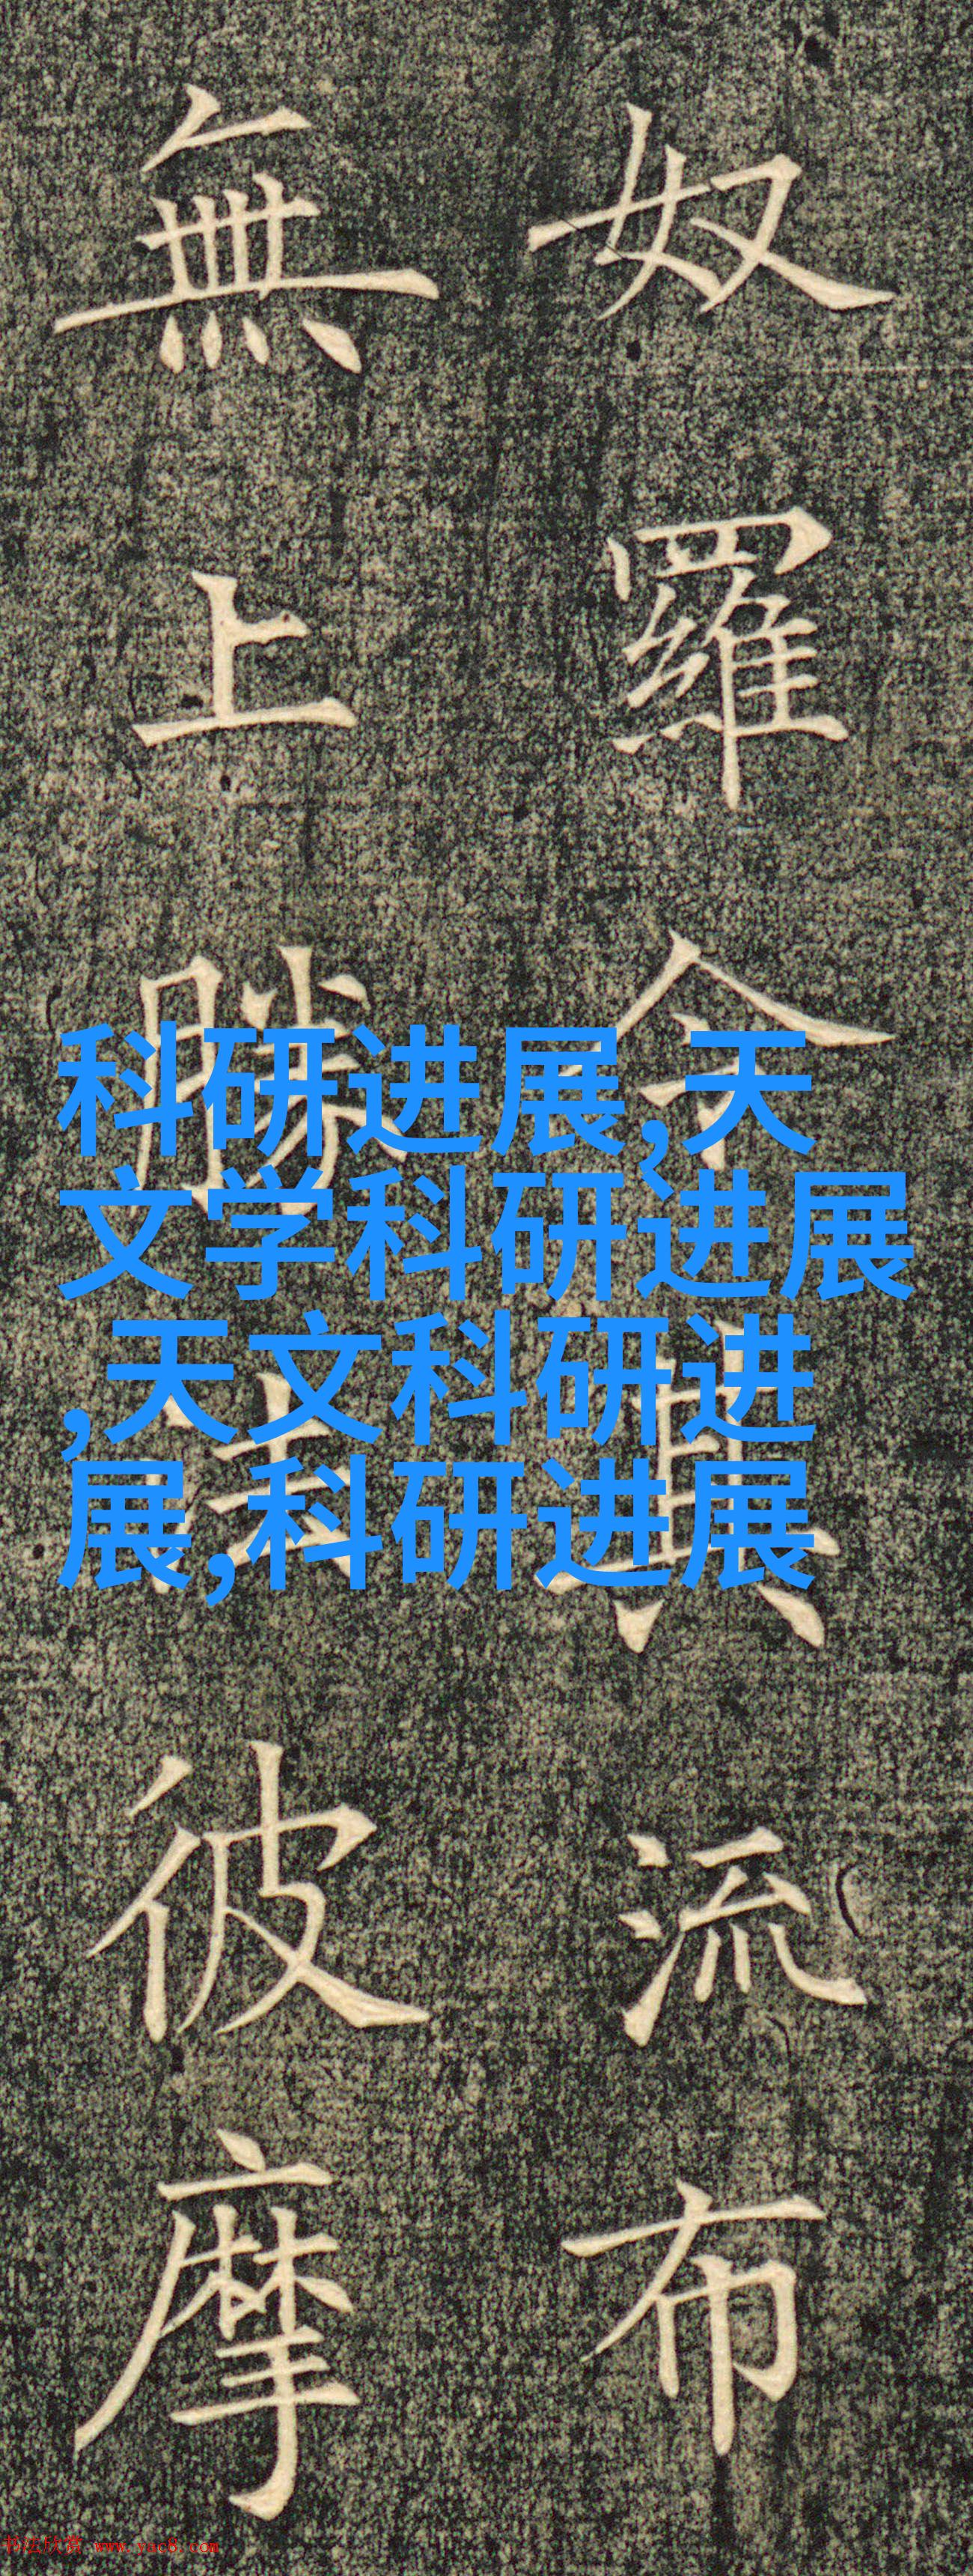 奴羅令其流布
無上勝法彼摩
科研进展,天
文学科研进展
,天文科研进
展,科研进展
书法欣赏 www.yac8.com